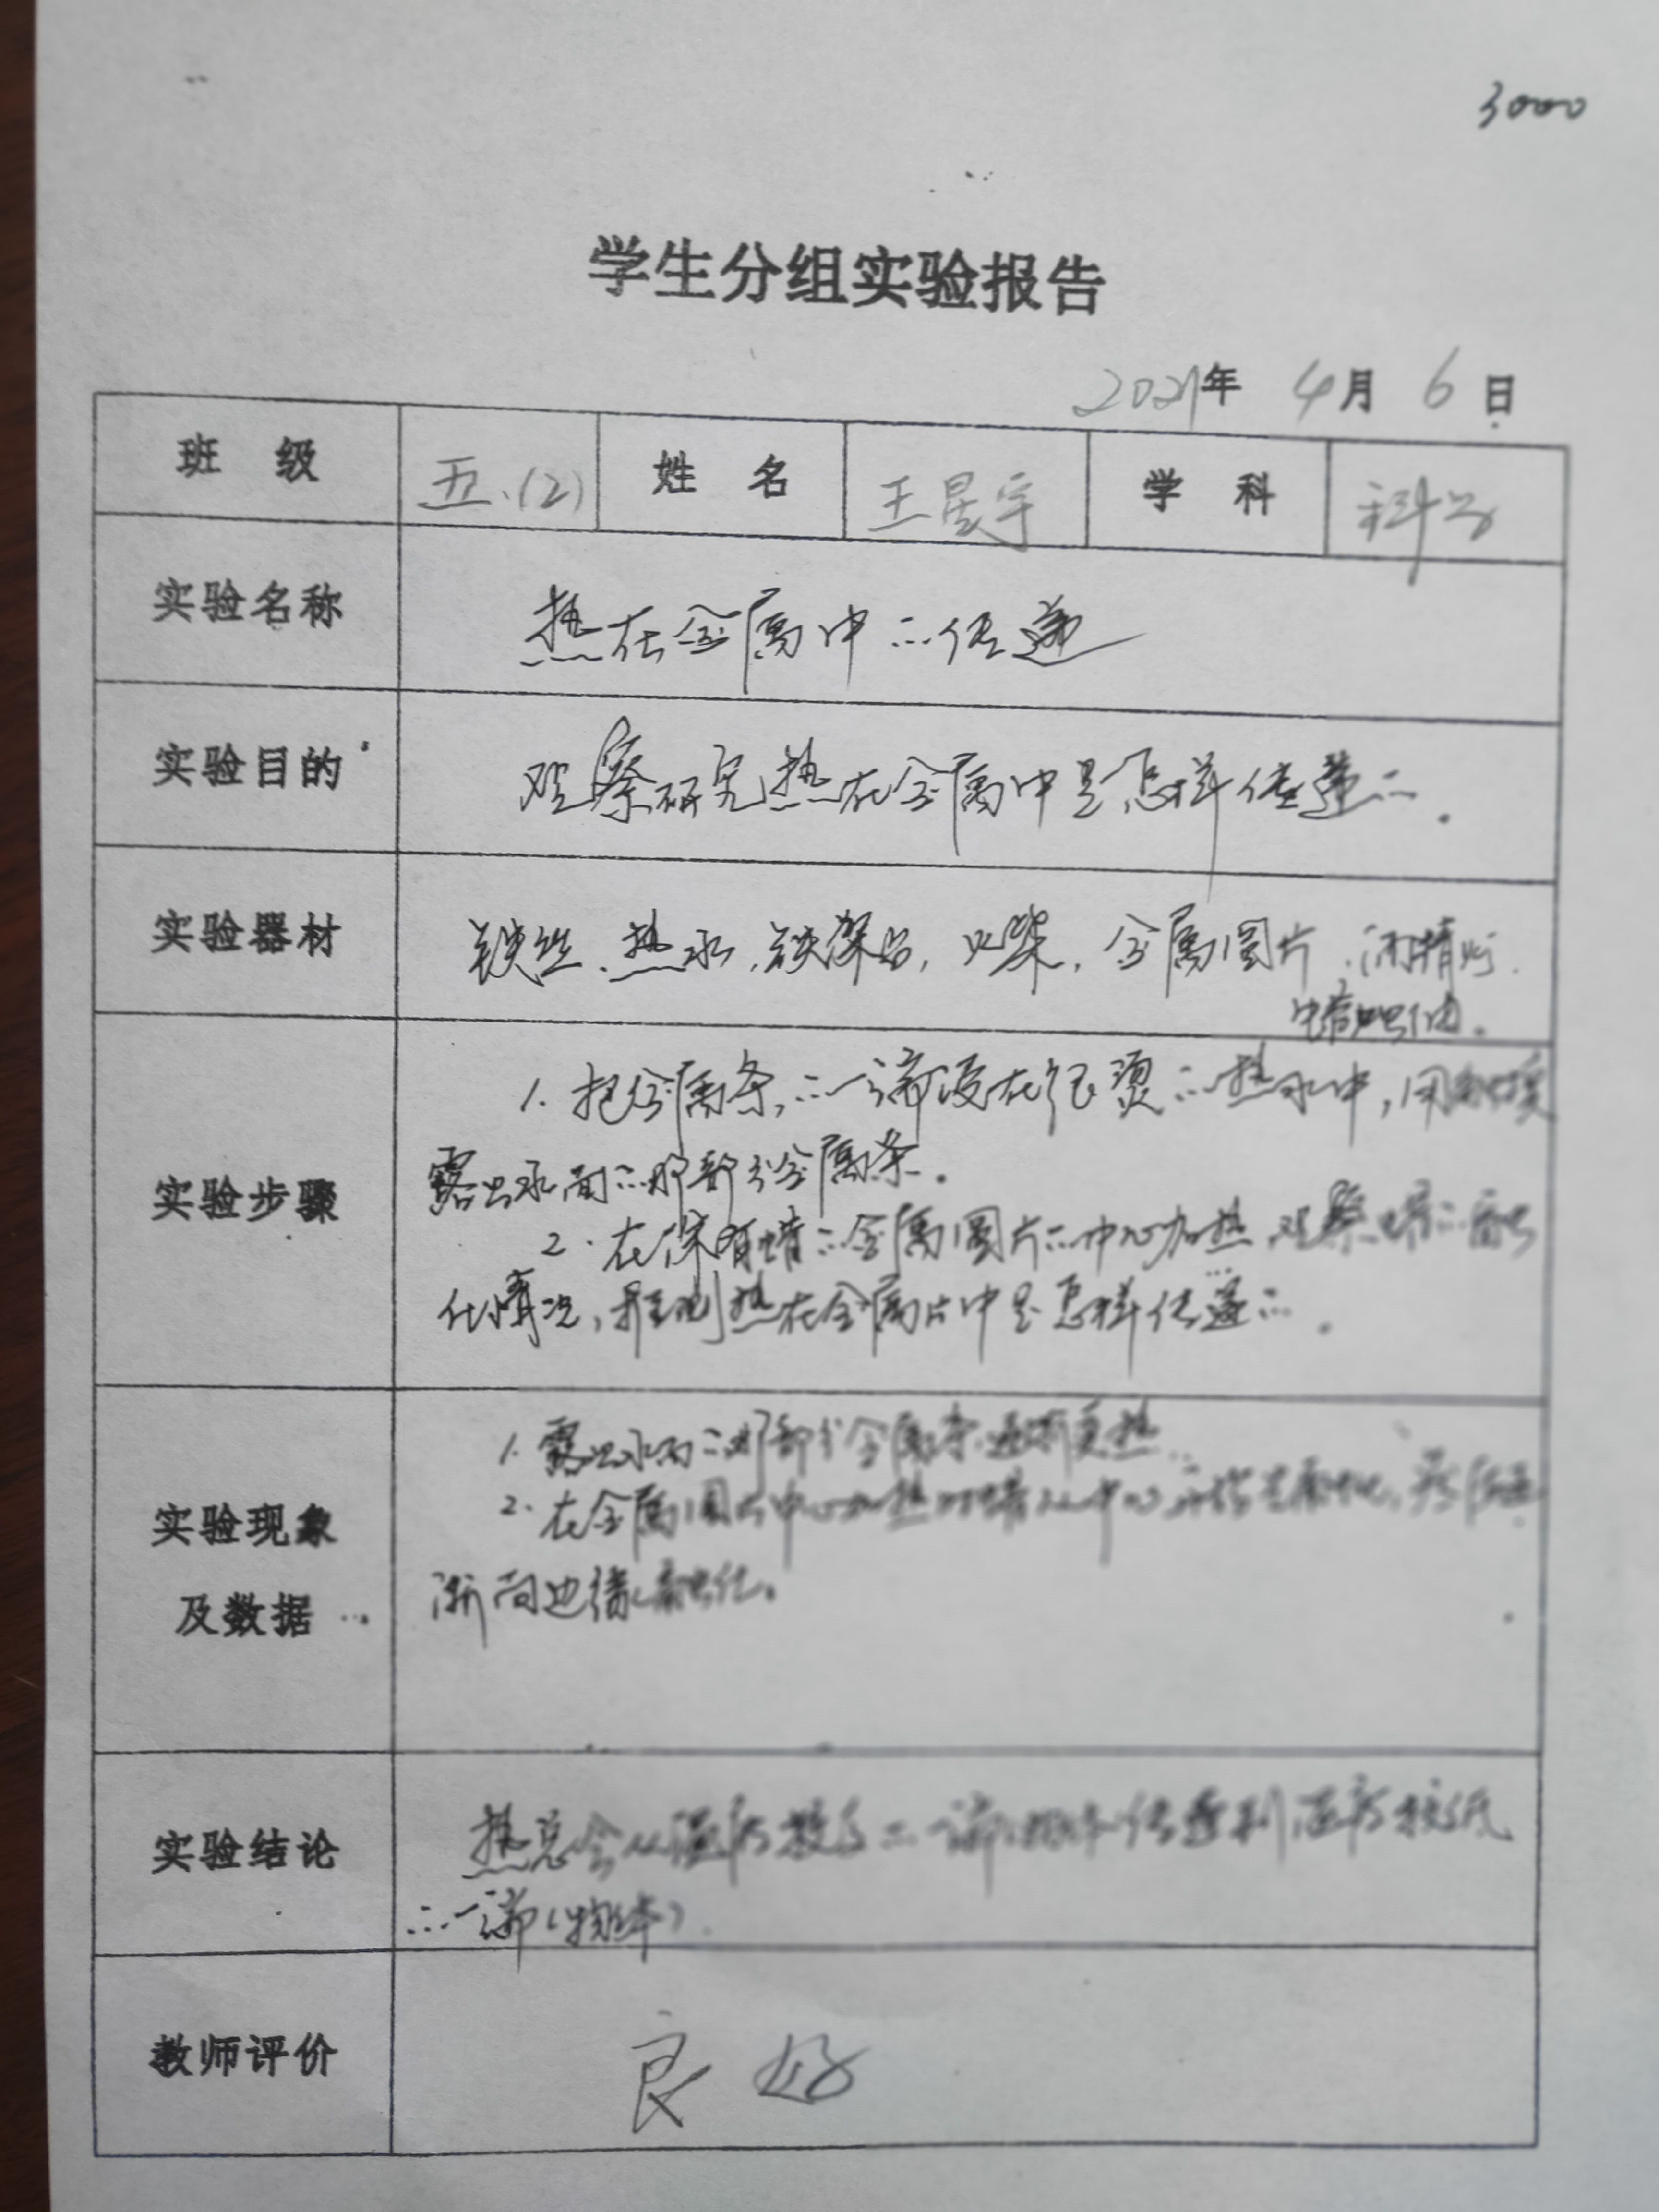 3000
学生分组实验报告
2021年 4月 6日
班 级 五.(2) 姓 名 王昱宇 学 科 科学
实验名称 热在金属中的传递
实验目的 观察研究热在金属中是怎样传递的.
实验器材 铁丝、热水、铁架台,火柴,金属圆片、酒精灯.
1. 把金属条,的一端浸在很烫的热水中,用
露出水面的那部分金属条.
实验步骤
2. 在涂有蜡的金属圆片的中心加热,观察蜡的融
化情况,推测热在金属片中是怎样传递的.
1. 露出水面的那部分金属条逐渐变热
2. 在金属圆片中心加热时蜡从中心开始先融化,然后逐
实验现象
及数据
渐向边缘融化.
实验结论 热总会从温度较高的一端物体传递到温度较低
的一端(物体).
教师评价 良好